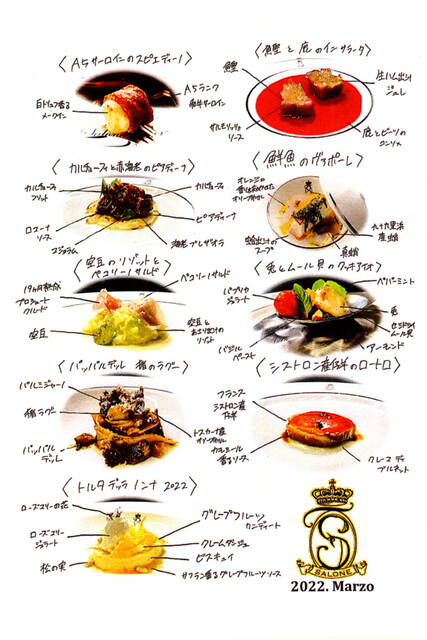 〈A5サーロインのスピエディーノ〉
A5ランク
白トリュフ香る
メークイン
〈鰹と鹿のインサラータ〉
鰹
生ハム出汁
ジュレ
サルモリッリョ
ソース
鹿とビーツの
〈カルチョーフィと赤海老のピアディーナ〉
カルチョーフィ
フリット
カルチョーフィ
ロマーナ
ソース
ピアディーナ
海老
〈鮮魚のヴァポーレ〉
オレンジの
オリーブオイル
蛤出汁の
スープ
真蛸
九十九里浜
産蛤
〈空豆のリゾットと
ペコリーノサルド〉
19ヶ月熟成
プロシュート
クルード
ペコリーノサルド
空豆
空豆と
リゾット
〈兎とムール貝の
パプリカ
ジェラート
ペパーミント
兎
セミドライ
ムール貝
バジル
ペースト
アーモンド
〈パッパルデッレ 猪のラグー〉
パルミジャーノ
猪ラグー
パッパル
デッレ
トスカーナ産
オリーブオイル
〈シストロン産仔羊のロートロ〉
フランス
シストロン産
仔羊
カモミール
香るソース
〈トルタ デッラ ノンナ 2022〉
ローズマリーの花
ローズマリー
ジェラート
松の実
グレープフルーツ
カンディート
クレームダンジュ
ビスキュイ
サフラン香るグレープフルーツソース
SALONE
2022. Marzo